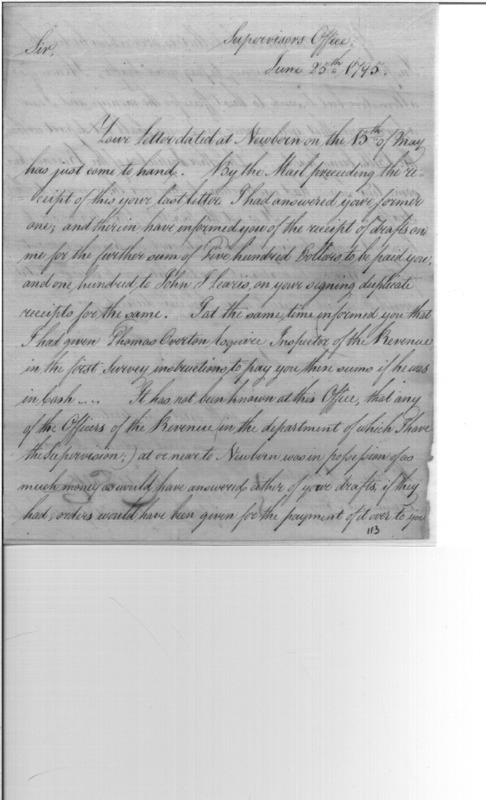 Supervisors Office,
Sir, June 25th 1795.
Your Letter dated at Newbern on the 15th of May
has just come to hand. By the Mail preceding the re-
-ceipt of this your last letter I had answered your former
one; and therein have informed you of the receipt of drafts on
me for the further sum of Five hundred Dollars to be paid you;
and one hundred to John on your signing duplicate
receipts for the same. I at the same time informed you that
I had given Thomas Overton Esquire Inspector of the Revenue
in the first Survey instructions, to pay you these sums if he was
in cash .... It has not been known at this Office, that any
of the Officers of the Revenue (in the department of which I have
the Supervision;) at or near to Newbern was in possession of as
much money as would have answered either of your drafts, if they
had, orders would have been given for the payment of it over to you
113